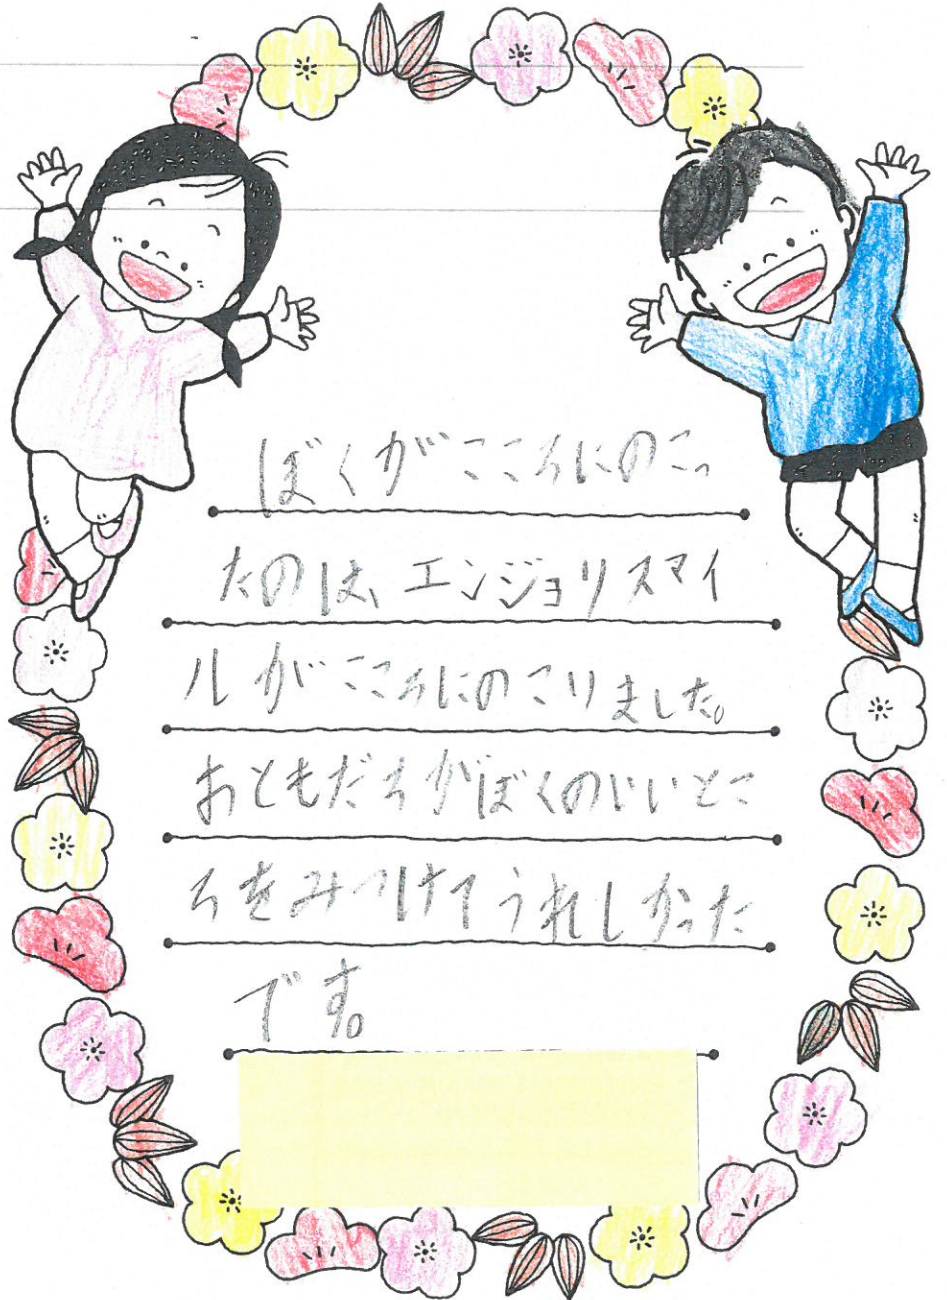 ぼくがこころにのこっ
たのは、エンジョリスマイ
ルがこころにのこりました。
おともだちがぼくのいいとこ
ろをみつけてうれしかった
です。